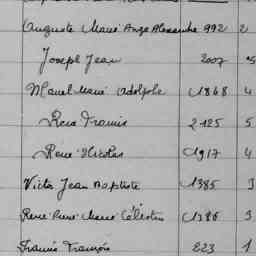 Auguste Marie Ange Alexandre 992 2
Joseph Jean 2007 5
Marcel Marie Adolphe 1868 4
René Francis 2125 5
René Nicolas 1917 4
Victor Jean Baptiste 1385 3
René Marie Célestin 1386 3
Francis François 223 1